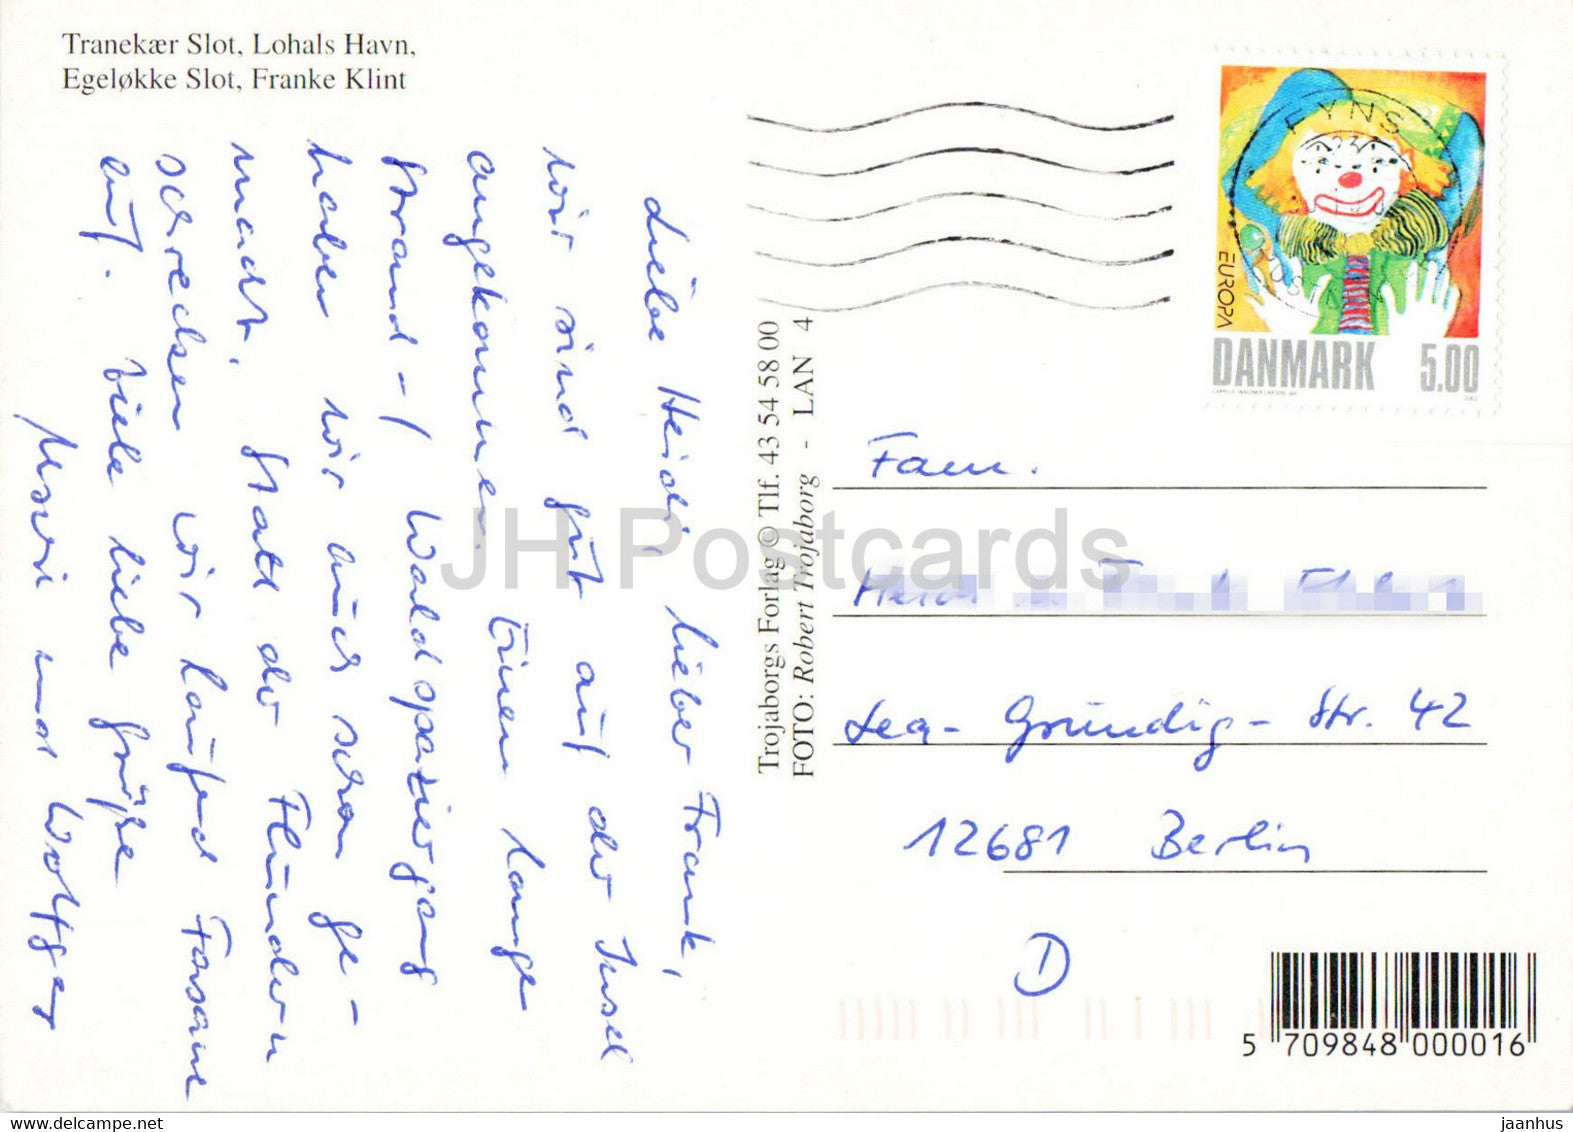 Tranekær Slot, Lohals Havn,
Egeløkke Slot, Franke Klint
Liebe Heidi, lieber Frank,
wir sind gut auf der Insel
angekommen. Einen lange
Strand-/Waldspaziergang
haben wir auch schon ge-
macht. Statt der Flundern
schrecken wir laufend Fasane
auf. Viele liebe Grüße
und Wolfger
Trojaborgs Forlag © Tlf. 43 54 58 00
FOTO: Robert Trojaborg - LAN 4
FYNS
EUROPA
DANMARK 5.00
2002
Fam.
Lea-Grundig-Str. 42
12681 Berlin
D
5 709848 000016
JH Postcards
jaanhus